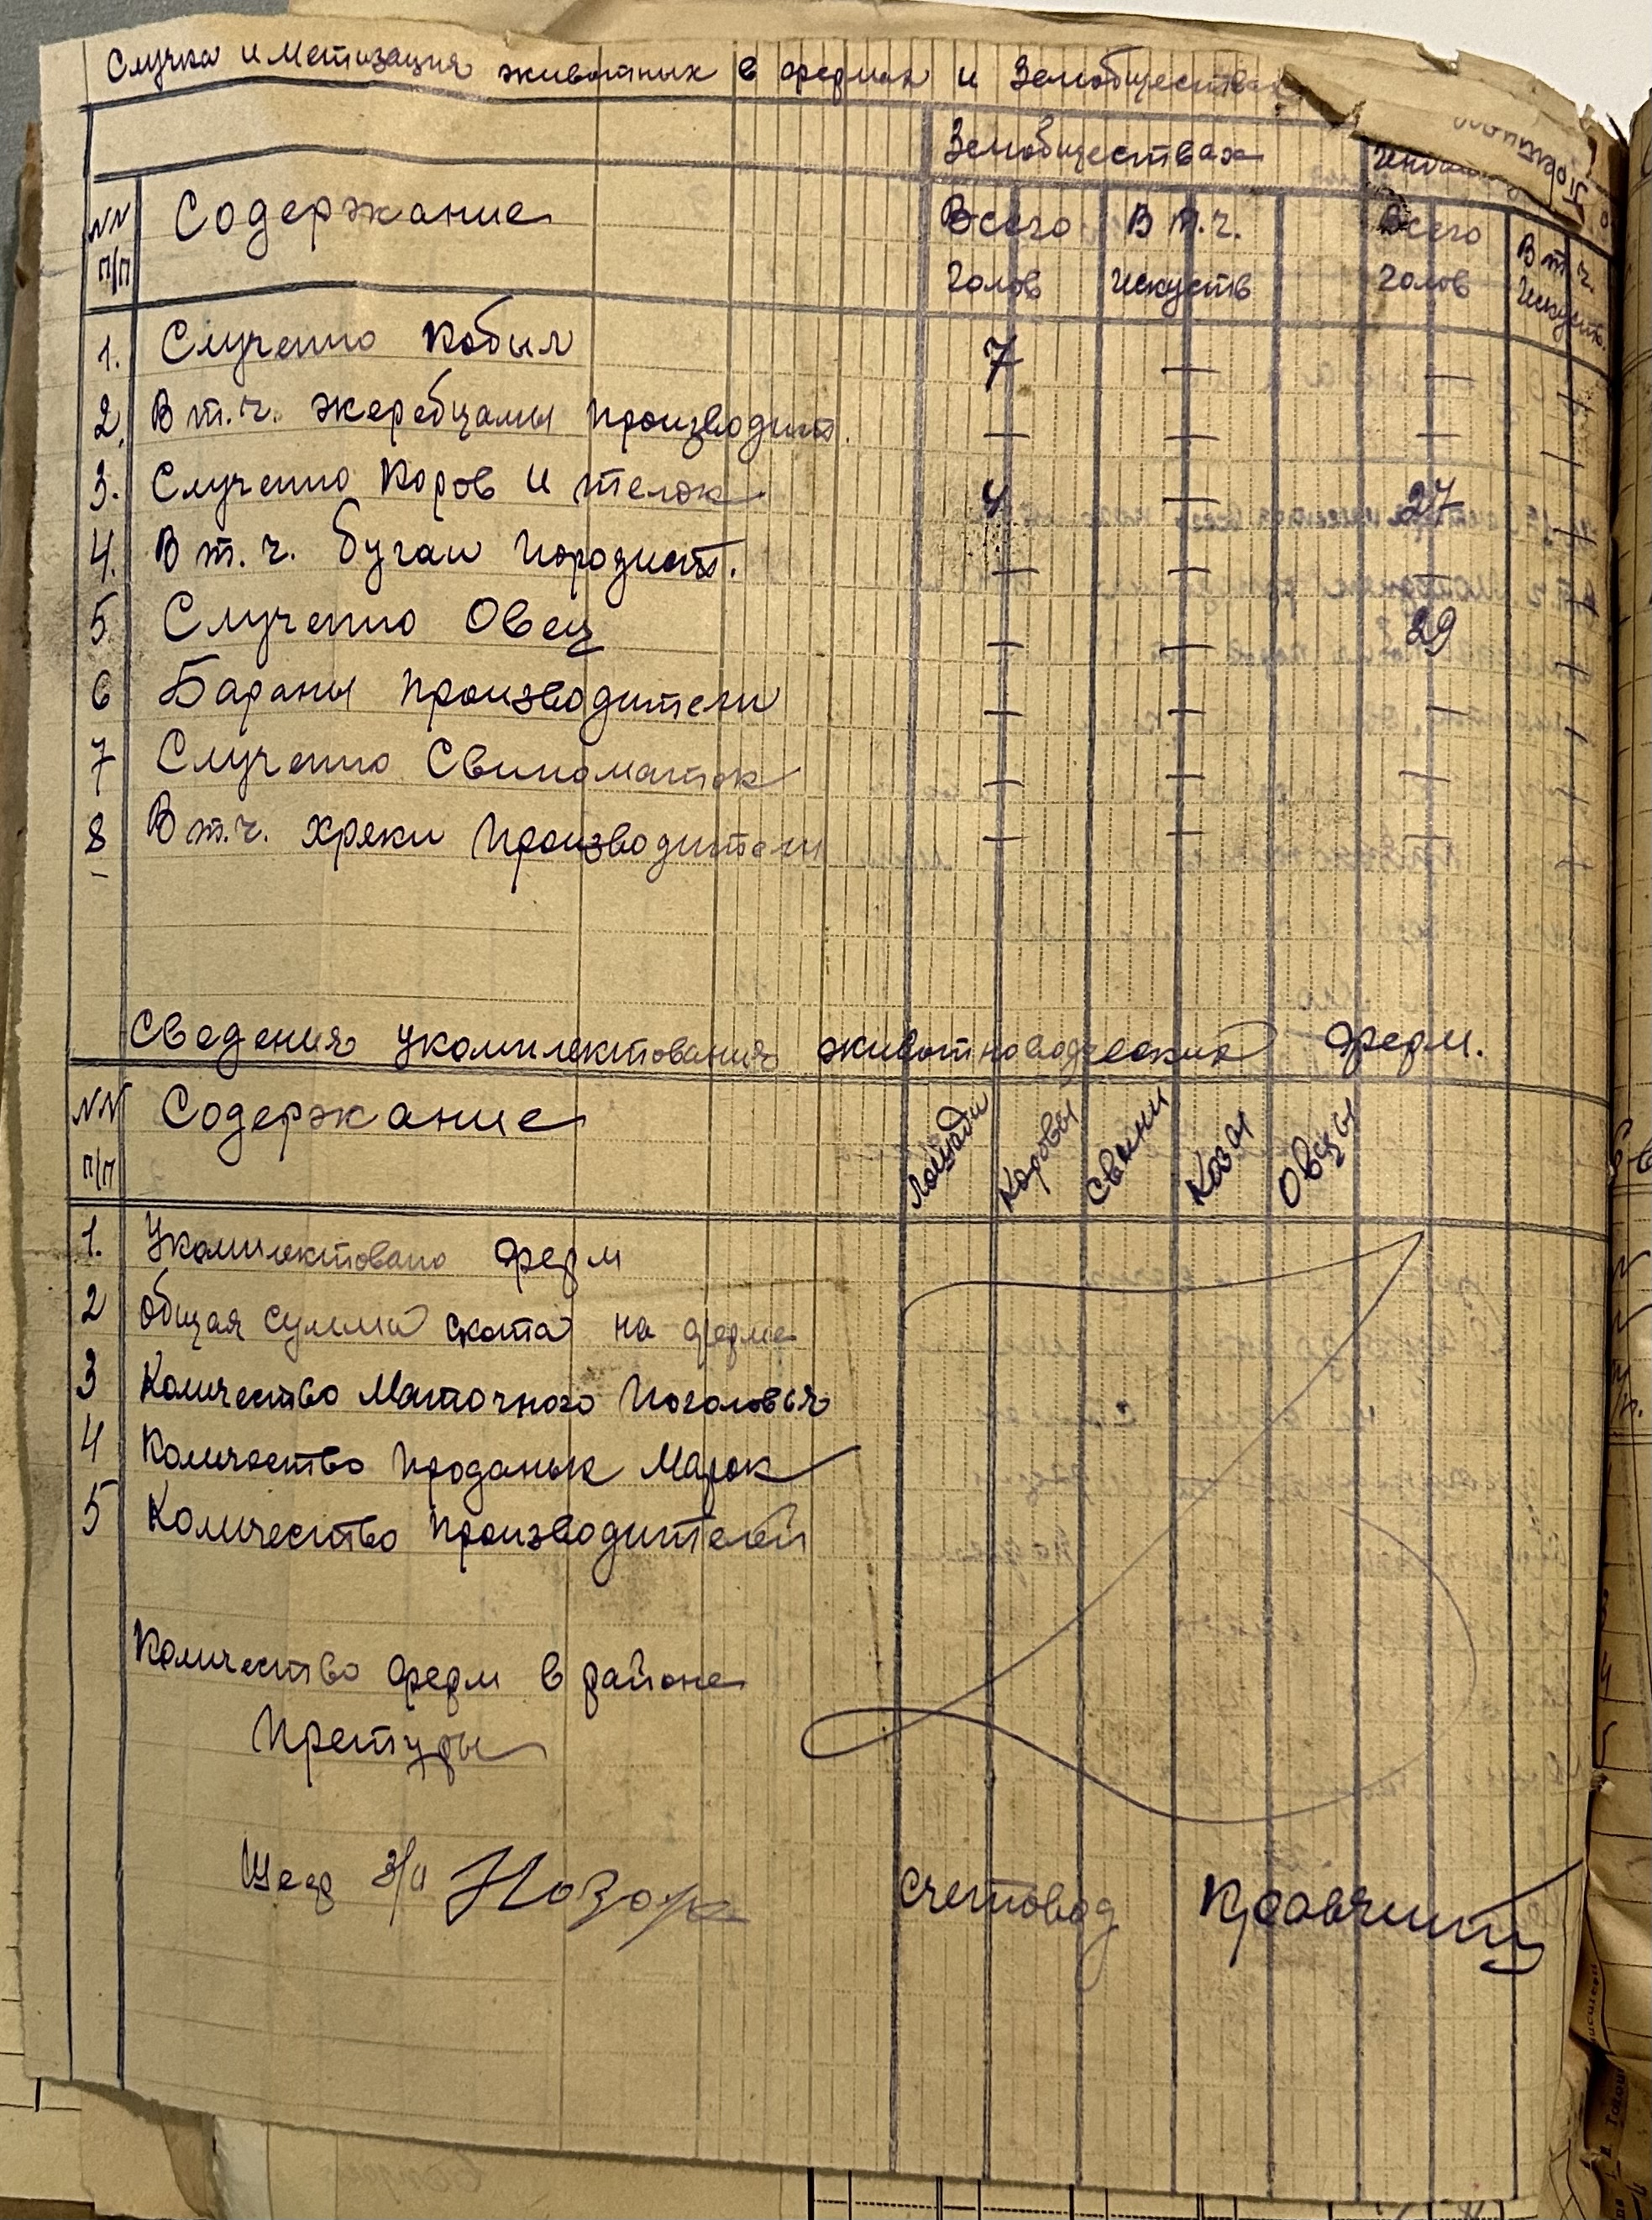 Случка и Метизация животных в фермах и Земобществах
Земобществах
NN п/п Содержание Всего голов В т.ч. искуств Всего голов В т.ч. искуств.
1. Слученно Кобыл 7 — — —
2. В т.ч. жеребцами производит. — — — —
3. Слученно Коров и телок 4 — 27 —
4. В т.ч. бугаи породист. — — — —
5 Слученно Овец — — 29 —
6 Бараны производители — — — —
7 Слученно Свиноматок — — — —
8 В т.ч. хряки производители — —
Сведения укомплектования животноводческих ферм.
NN п/п Содержание Лошади Коровы Свиньи Козы Овцы
1. Укомплектовано ферм
2 Общая сумма скота на ферме
3 Количество Маточного Поголовья
4 Количество проданых Марок
5 Количество производителей
Количество ферм в районе
Претуры
счетовод